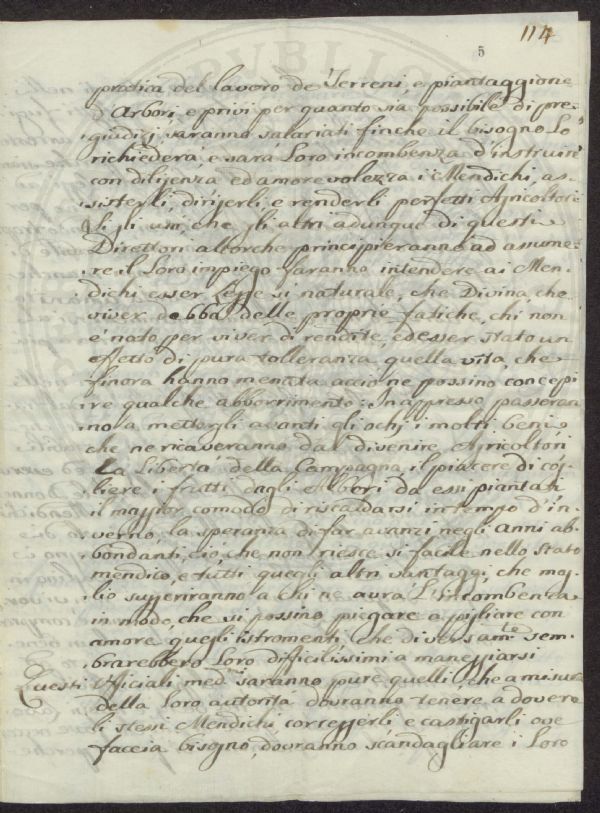 114
5
pratica del lavoro de Terreni, e piantaggione
d'Arbori, e privi per quanto sia possibile di pre-
giudizj saranno salariati finche il bisogno Lo
richiederà, e sarà Loro incombenza d'instruire
con diligenza ed amorevolezza i Mendichi, as-
sisterli, dirigerli, e renderli perfetti Agricoltori
Si gli uni, che gli altri adunque di questi
Direttori allorche principieranno ad assume-
re il Loro impiego faranno intendere ai Men-
dichi esser Legge si naturale, che Divina, che
viver debba delle proprie fatiche, chi non
è nato per viver di rendite, ed esser stato un
effetto di pura tolleranza quella vita, che
finora hanno menata acciò ne possino concepi
re qualche abborrimento: In appresso passeran
no a mettergli avanti gli ochj i molti beni
che ne ricaveranno dal divenire Agricoltori
La Libertà della Campagna, il piacere di cog-
liere i frutti dagli Albori da essi piantati
il maggior comodo di riscaldarsi in tempo d'in-
verno, la speranza di far avanzi negli anni ab-
bondanti, ciò che non riesce si facile nello Stato
mendico, e tutti quegli altri vantaggi, che meg-
lio suggeriranno a chi ne aura L'incombenza
in modo, che si possino piegare a pigliare con
amore quegli istromenti che diversam.te sem-
brarebbero Loro difficilissimi a maneggiarsi
Questi Ufficiali med.mi saranno pure quelli, che a misura
della Loro autorità dovranno tenere a dovere
li stessi Mendichi, correggerli e castigarli ove
faccia bisogno, dovranno scandagliare i Loro